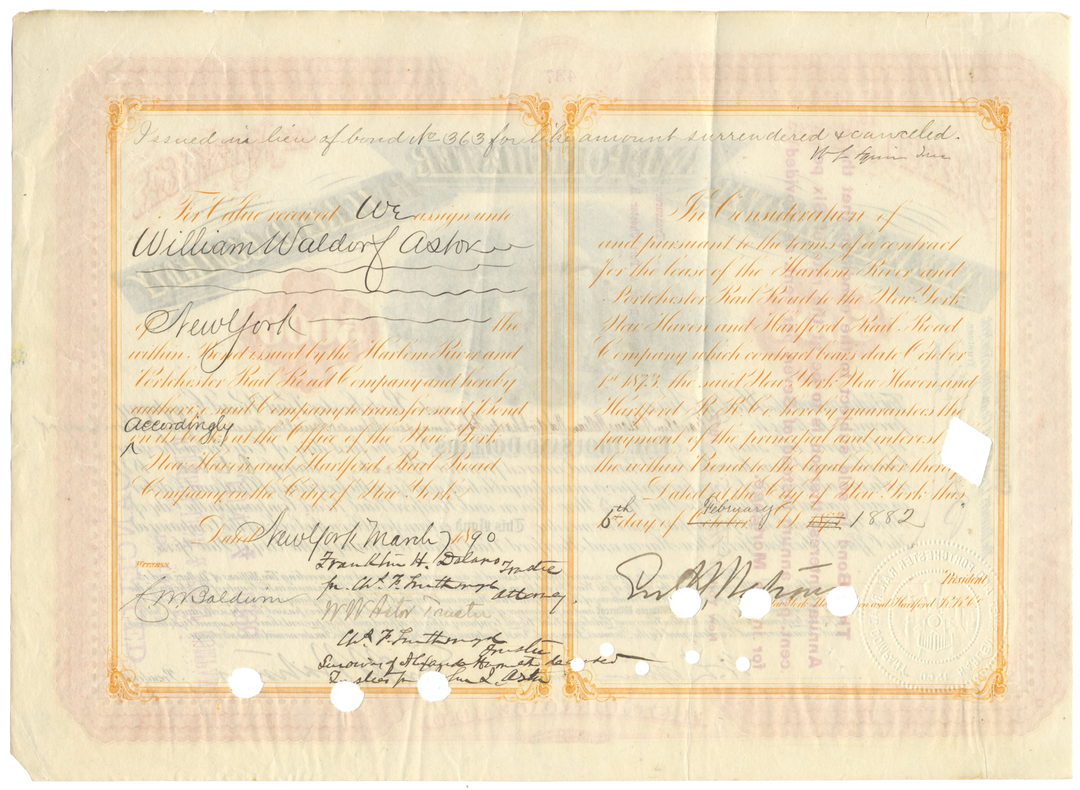 Issued in lieu of bond No 363 for like amount surrendered & canceled.
For Value received We assign unto
William Waldorf Astor
of New York the
within Bond issued by the Harlem River and
Portchester Rail Road Company and hereby
authorize said Company to transfer said Bond
accordingly
on its books at the Office of the New York
New Haven and Hartford Rail Road
Company in the City of New York.
Dated New York March 7 1890
Witness
Franklin H. Delano Trustee
attorney
W W Astor Trustee
Trustee
In Consideration of
and pursuant to the terms of a contract
for the lease of the Harlem River and
Portchester Rail Road to the New York
New Haven and Hartford Rail Road
Company which contract bears date October
1st 1873. the said New York New Haven and
Hartford R.R. Co. hereby guarantees the
payment of the principal and interest
the within Bond to the legal holder
Dated at the City of New York this
6th day of February 1882
President
New York and Hartford R.R. Co.